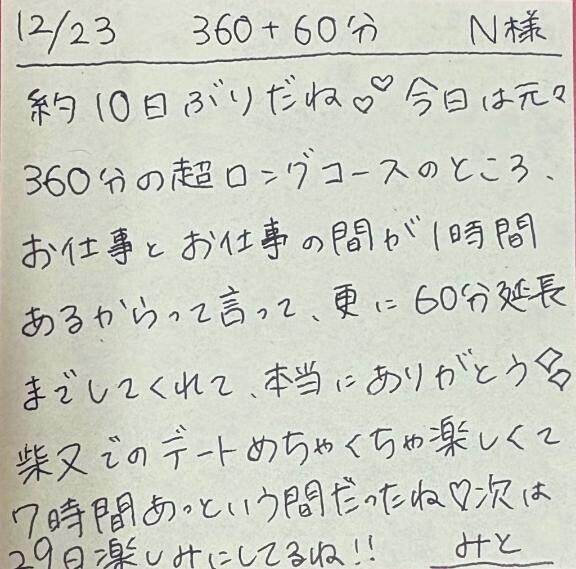 12/23 360+60分 N様
約10日ぶりだね♡♡今日は元々
360分の超ロングコースのところ、
お仕事とお仕事の間が1時間
あるからって言って、更に60分延長
までしてくれて、本当にありがとう
柴又でのデートめちゃくちゃ楽しくて
7時間あっという間だったね♡次は
29日楽しみにしてるね!! みと